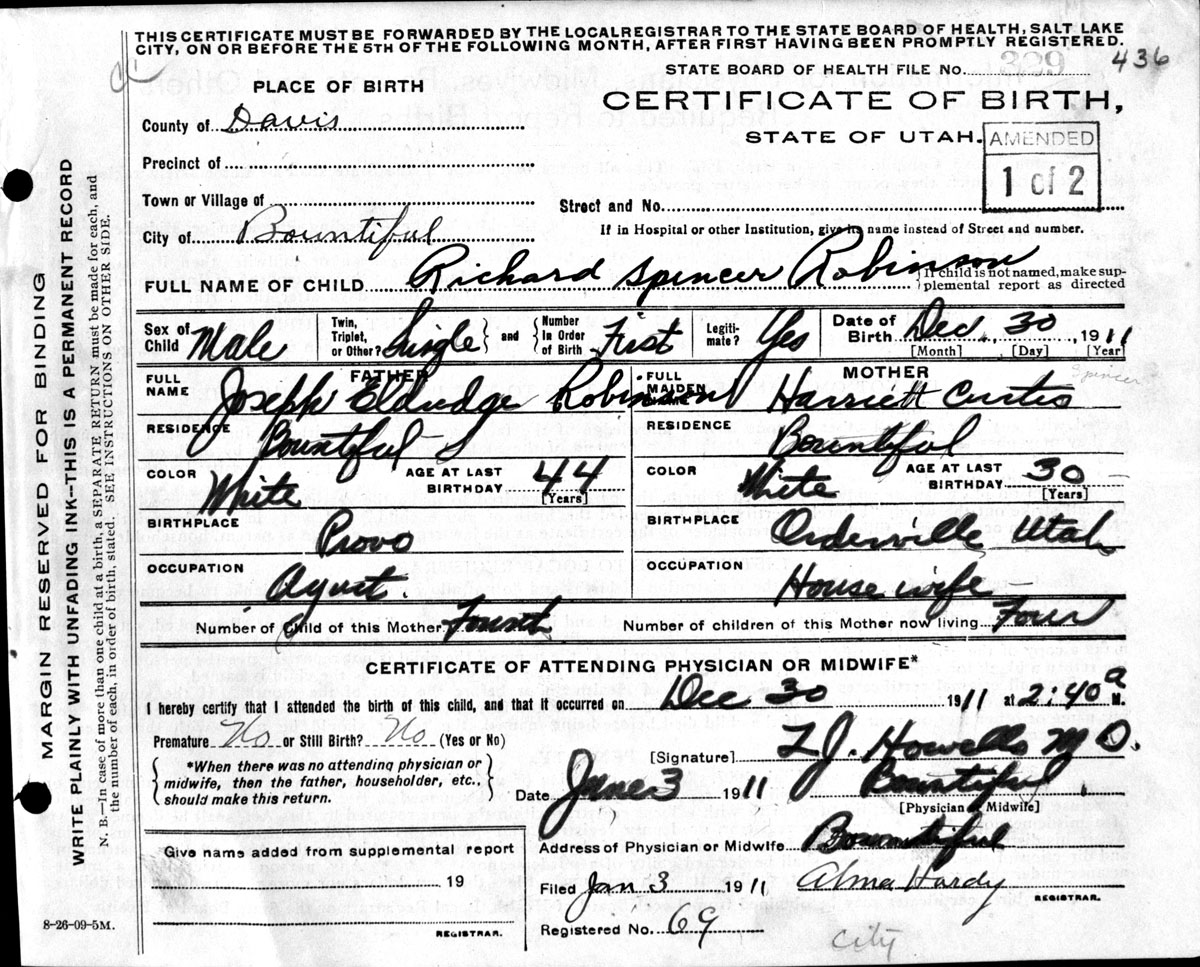 THIS CERTIFICATE MUST BE FORWARDED BY THE LOCALREGISTRAR TO THE STATE BOARD OF HEALTH, SALT LAKE
CITY, ON OR BEFORE THE 5TH OF THE FOLLOWING MONTH, AFTER FIRST HAVING BEEN PROMPTLY REGISTERED.
STATE BOARD OF HEALTH FILE No. 329 436
PLACE OF BIRTH
CERTIFICATE OF BIRTH,
STATE OF UTAH.
AMENDED
1 of 2
County of Davis
Precinct of
Town or Village of
Street and No.
City of Bountiful
If in Hospital or other Institution, give its name instead of Street and number.
FULL NAME OF CHILD Richard Spencer Robinson
If child is not named, make sup-
plemental report as directed
Sex of Child Male Twin, Triplet, or Other? Single and Number in Order of Birth First Legiti- mate? Yes Date of Birth Dec. 30 1911
[Month] [Day] [Year]
FATHER MOTHER
Spencer
FULL NAME Joseph Eldredge Robinson FULL MAIDEN NAME Harriett Curtis
RESIDENCE Bountiful RESIDENCE Bountiful
COLOR White AGE AT LAST BIRTHDAY 44 [Years] COLOR White AGE AT LAST BIRTHDAY 30 [Years]
BIRTHPLACE Provo BIRTHPLACE Orderville Utah
OCCUPATION Agent. OCCUPATION House wife
Number of Child of this Mother Fourth Number of children of this Mother now living Four
CERTIFICATE OF ATTENDING PHYSICIAN OR MIDWIFE*
I hereby certify that I attended the birth of this child, and that it occurred on Dec 30 1911 at 2:40 a M.
Premature No or Still Birth? No (Yes or No)
[Signature] L J. Howells M D.
*When there was no attending physician or
midwife, then the father, householder, etc.,
should make this return.
Date June 3 1911 Bountiful
[Physician or Midwife]
Address of Physician or Midwife Bountiful
Give name added from supplemental report
19
REGISTRAR.
Filed Jan 3 1911 Alma Hardy
REGISTRAR.
Registered No. 69
City
8-26-09-5M.
MARGIN RESERVED FOR BINDING
WRITE PLAINLY WITH UNFADING INK--THIS IS A PERMANENT RECORD
N. B.--In case of more than one child at a birth, a SEPARATE RETURN must be made for each, and
the number of each, in order of birth, stated. SEE INSTRUCTIONS ON OTHER SIDE.